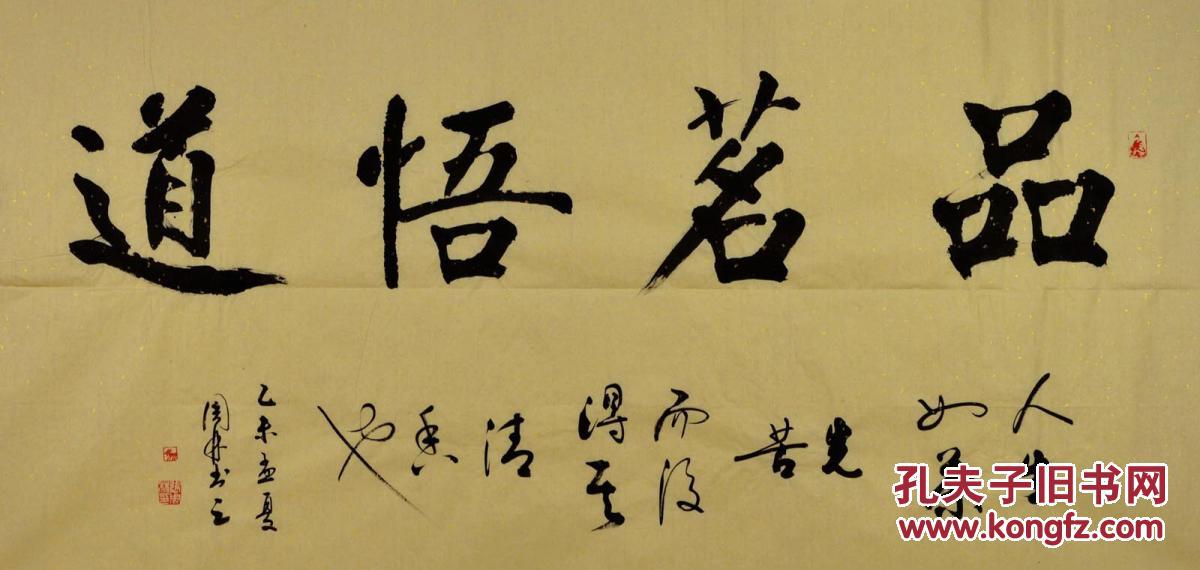 品茗悟道
人生
如茶
先
苦
而后
得其
清
香
也
乙未孟夏
周舟书之
孔夫子旧书网
www.kongfz.com